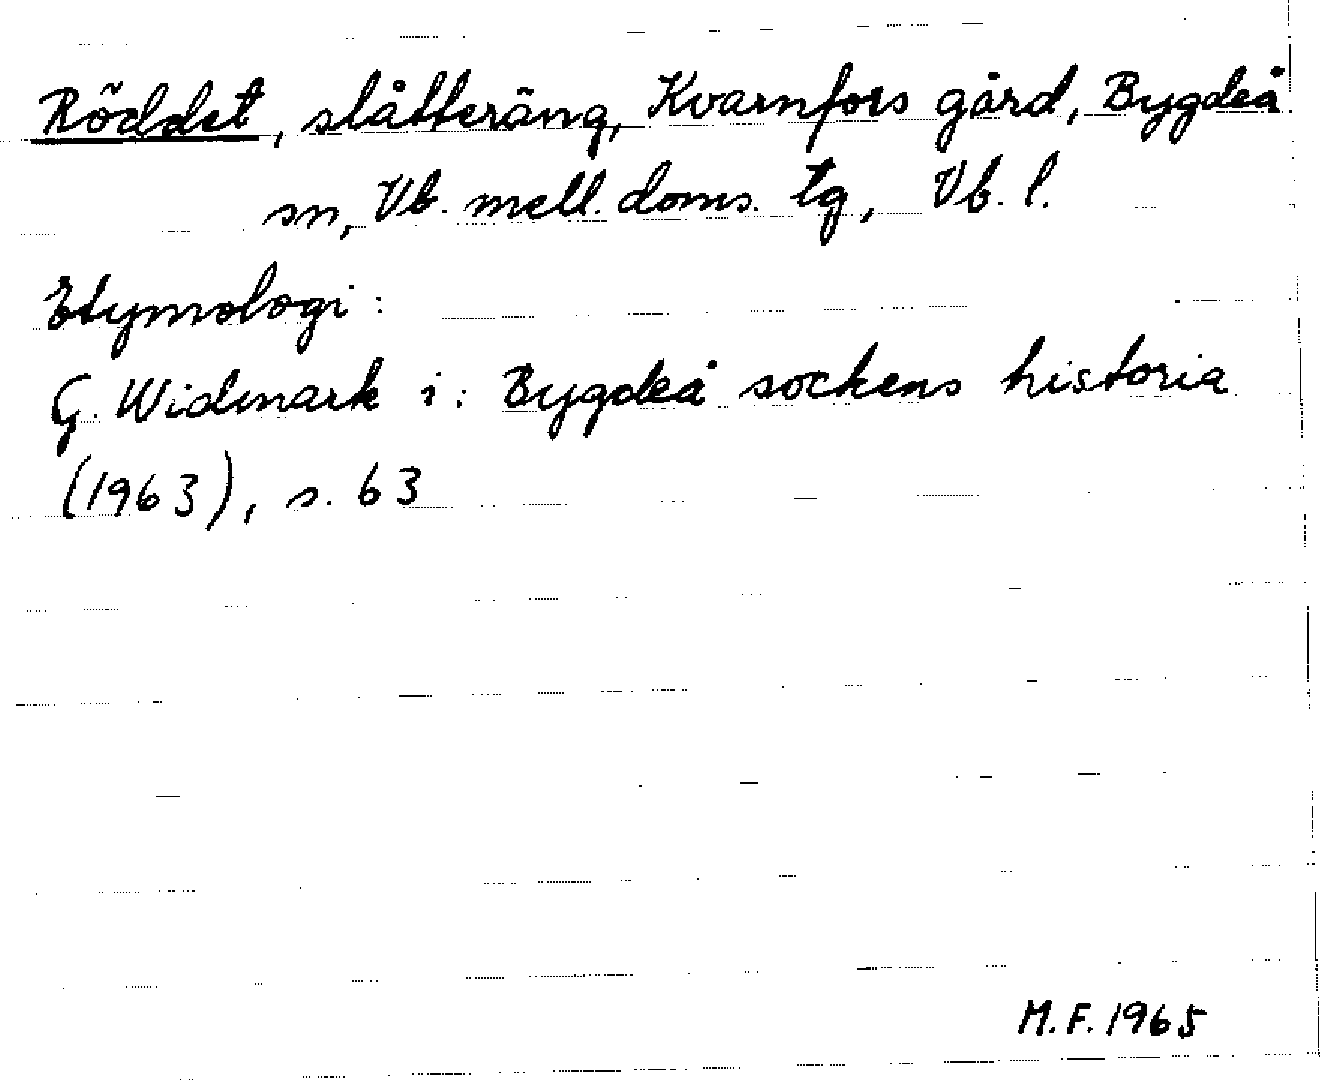 Röddet, slåtteräng, Kvarnfors gård, Bygdeå
sn, Vb. mell. doms. tg, Vb. l.
Etymologi:
G. Widmark i: Bygdeå sockens historia
(1963), s. 63
M.F. 1965